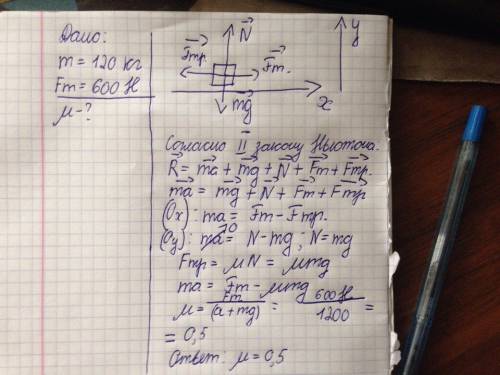 Дано:
m = 120 кг
Fт = 600 Н
μ - ?
N
y
Fтр.
Fт.
mg
x
Согласно II закону Ньютона:
R = ma + mg + N + Fт + Fтр.
ma = mg + N + Fт + Fтр
(Ox): ma = Fт - Fтр.
(Oy): ma = N - mg; N = mg
0
Fтр = μN = μmg
ma = Fт - μmg
μ = Fт / (a + mg) = 600 Н / 1200 =
= 0,5
Ответ: μ = 0,5